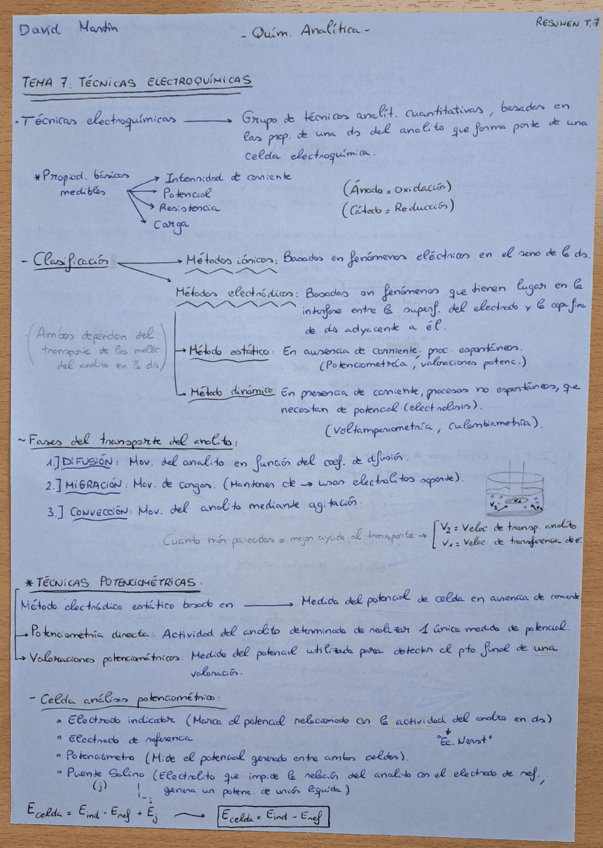 David Martín
- Quím. Analítica -
RESUMEN T.7
TEMA 7: TÉCNICAS ELECTROQUÍMICAS
• Técnicas electroquímicas → Grupo de técnicas analít. cuantitativas, basadas en
las prop. de una ds del analito que forma parte de una
celda electroquímica.
* Propied. básicas medibles → Intensidad de corriente
→ Potencial
→ Resistencia
→ Carga
(Ánodo = Oxidación)
(Cátodo = Reducción)
- Clasificación → Métodos iónicos: Basados en fenómenos eléctricos en el seno de la ds.
Métodos electródicos: Basados en fenómenos que tienen lugar en la
interfase entre la superf. del electrodo y la capa fina
de ds adyacente a él.
(Ambos dependen del
transporte de las moléc
del analito en la ds)
→ Método estático: En ausencia de corriente, proc. espontáneos.
(Potenciometría, valoraciones potenc.)
→ Método dinámico: En presencia de corriente, procesos no espontáneos, que
necesitan de potencial (electrolisis).
(Voltamperometría, culombimetría).
~ Fases del transporte del analito:
1.] DIFUSIÓN: Mov. del analito en función del coef. de difusión.
2.] MIGRACIÓN: Mov. de cargas. (Mantener cte → usas electrolitos soporte).
3.] CONVECCIÓN: Mov. del analito mediante agitación.
Cuanto más parecidas = mejor ayuda al transporte → [V₂ = Veloc. de transp. analito
V₁ = Veloc. de transferencia de e⁻
* TÉCNICAS POTENCIOMÉTRICAS:
Método electródico estático basado en → Medida del potencial de celda en ausencia de corriente
→ Potenciometría directa: Actividad del analito determinada de realizar 1 única medida de potencial.
→ Valoraciones potenciométricas: Medida del potencial utilizada para detectar el pto final de una
valoración.
- Celda análisis potenciométrico:
• Electrodo indicador (Marca el potencial relacionado con la actividad del analito en ds)
• Electrodo de referencia
"Ec. Nerst"
• Potenciómetro (Mide el potencial generado entre ambas celdas).
• Puente Salino (Electrolito que impide la relación del analito con el electrodo de ref.,
(j) genera un potenc. de unión líquida)
E celda = E ind - E ref + E j → E celda = E ind - E ref